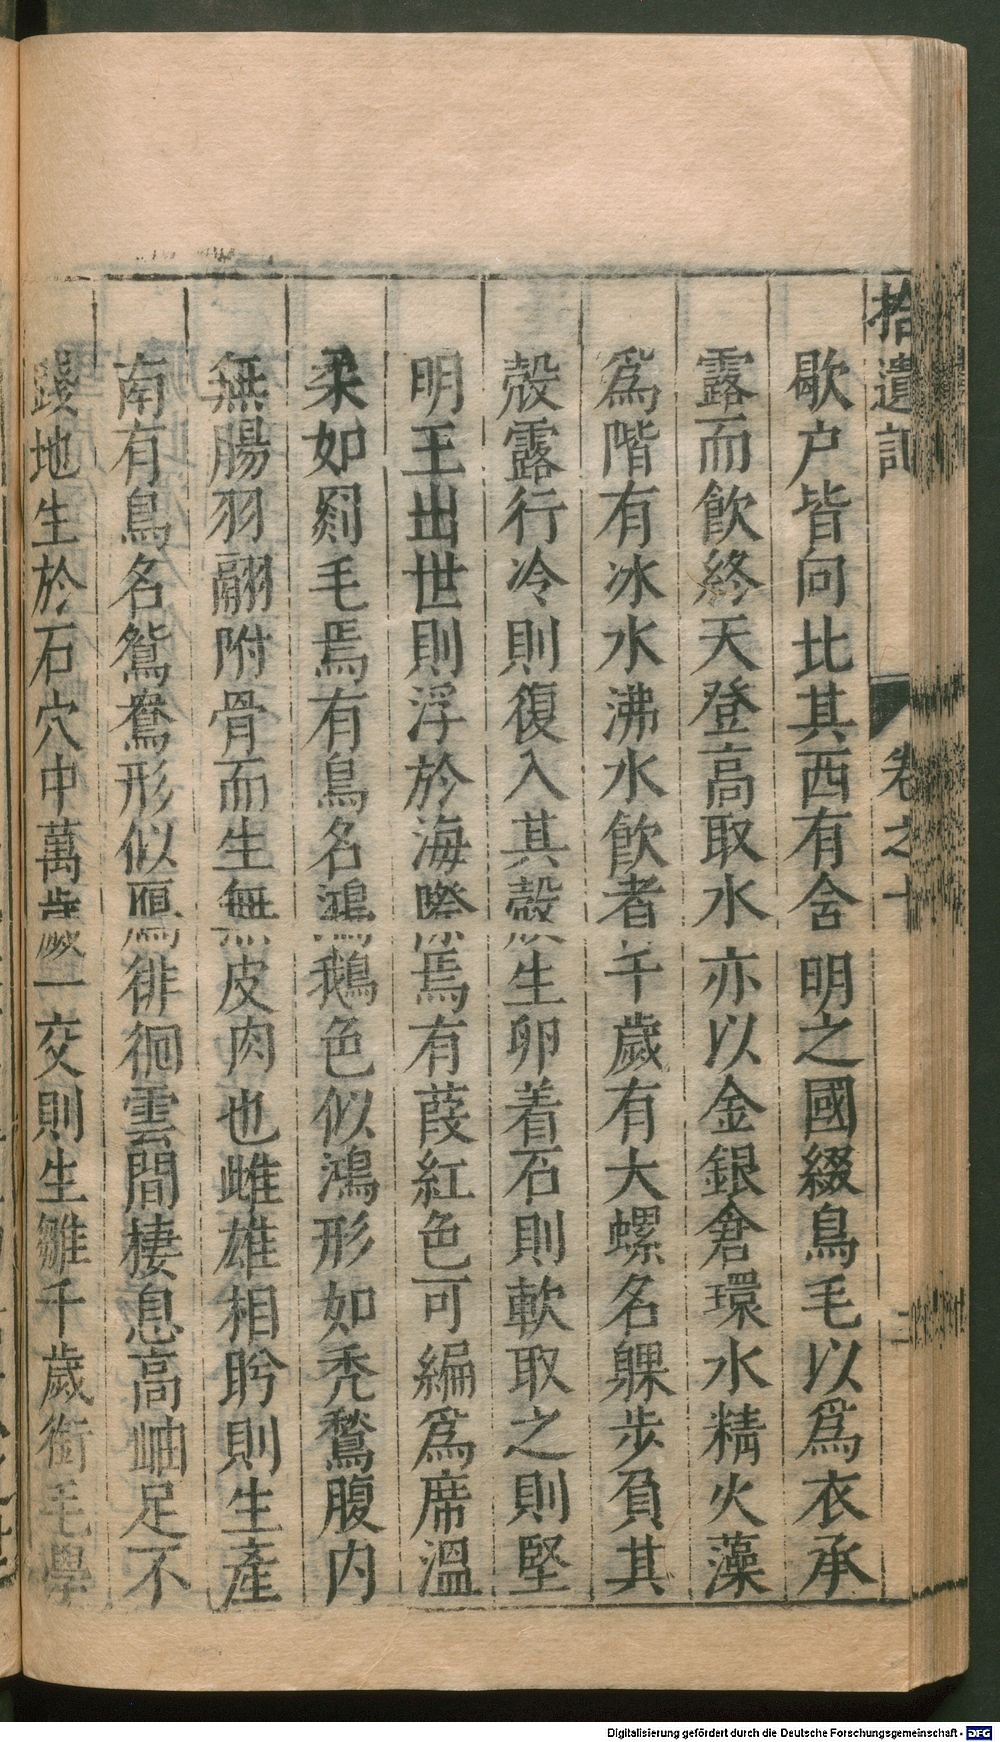 拾遺記 卷之十 二
歇户皆向比其西有含明之國綴鳥毛以爲衣承
露而飲終天登高取水亦以金銀倉環水精火藻
爲階有冰水沸水飲者千歲有大螺名躶步負其
殼露行冷則復入其殼生卵着石則軟取之則堅
明王出世則浮於海際焉有葭紅色可編爲席溫
柔如罽毛焉有鳥名鴻鵝色似鴻形如禿鶖腹内
無腸羽翮附骨而生無皮肉也雌雄相眄則生產
南有鳥名鴛鴦形似鴈徘徊雲間棲息高岫足不
踐地生於石穴中萬歲一交則生雛千歲銜毛學
Digitalisierung gefördert durch die Deutsche Forschungsgemeinschaft - DFG